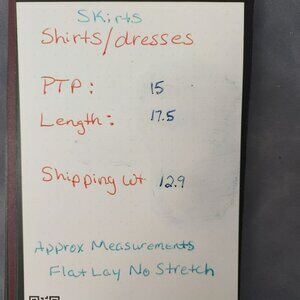 Skirts
Shirts/dresses
PTP: 15
Length: 17.5
Shipping wt 12.9
Approx Measurements
Flat Lay No Stretch